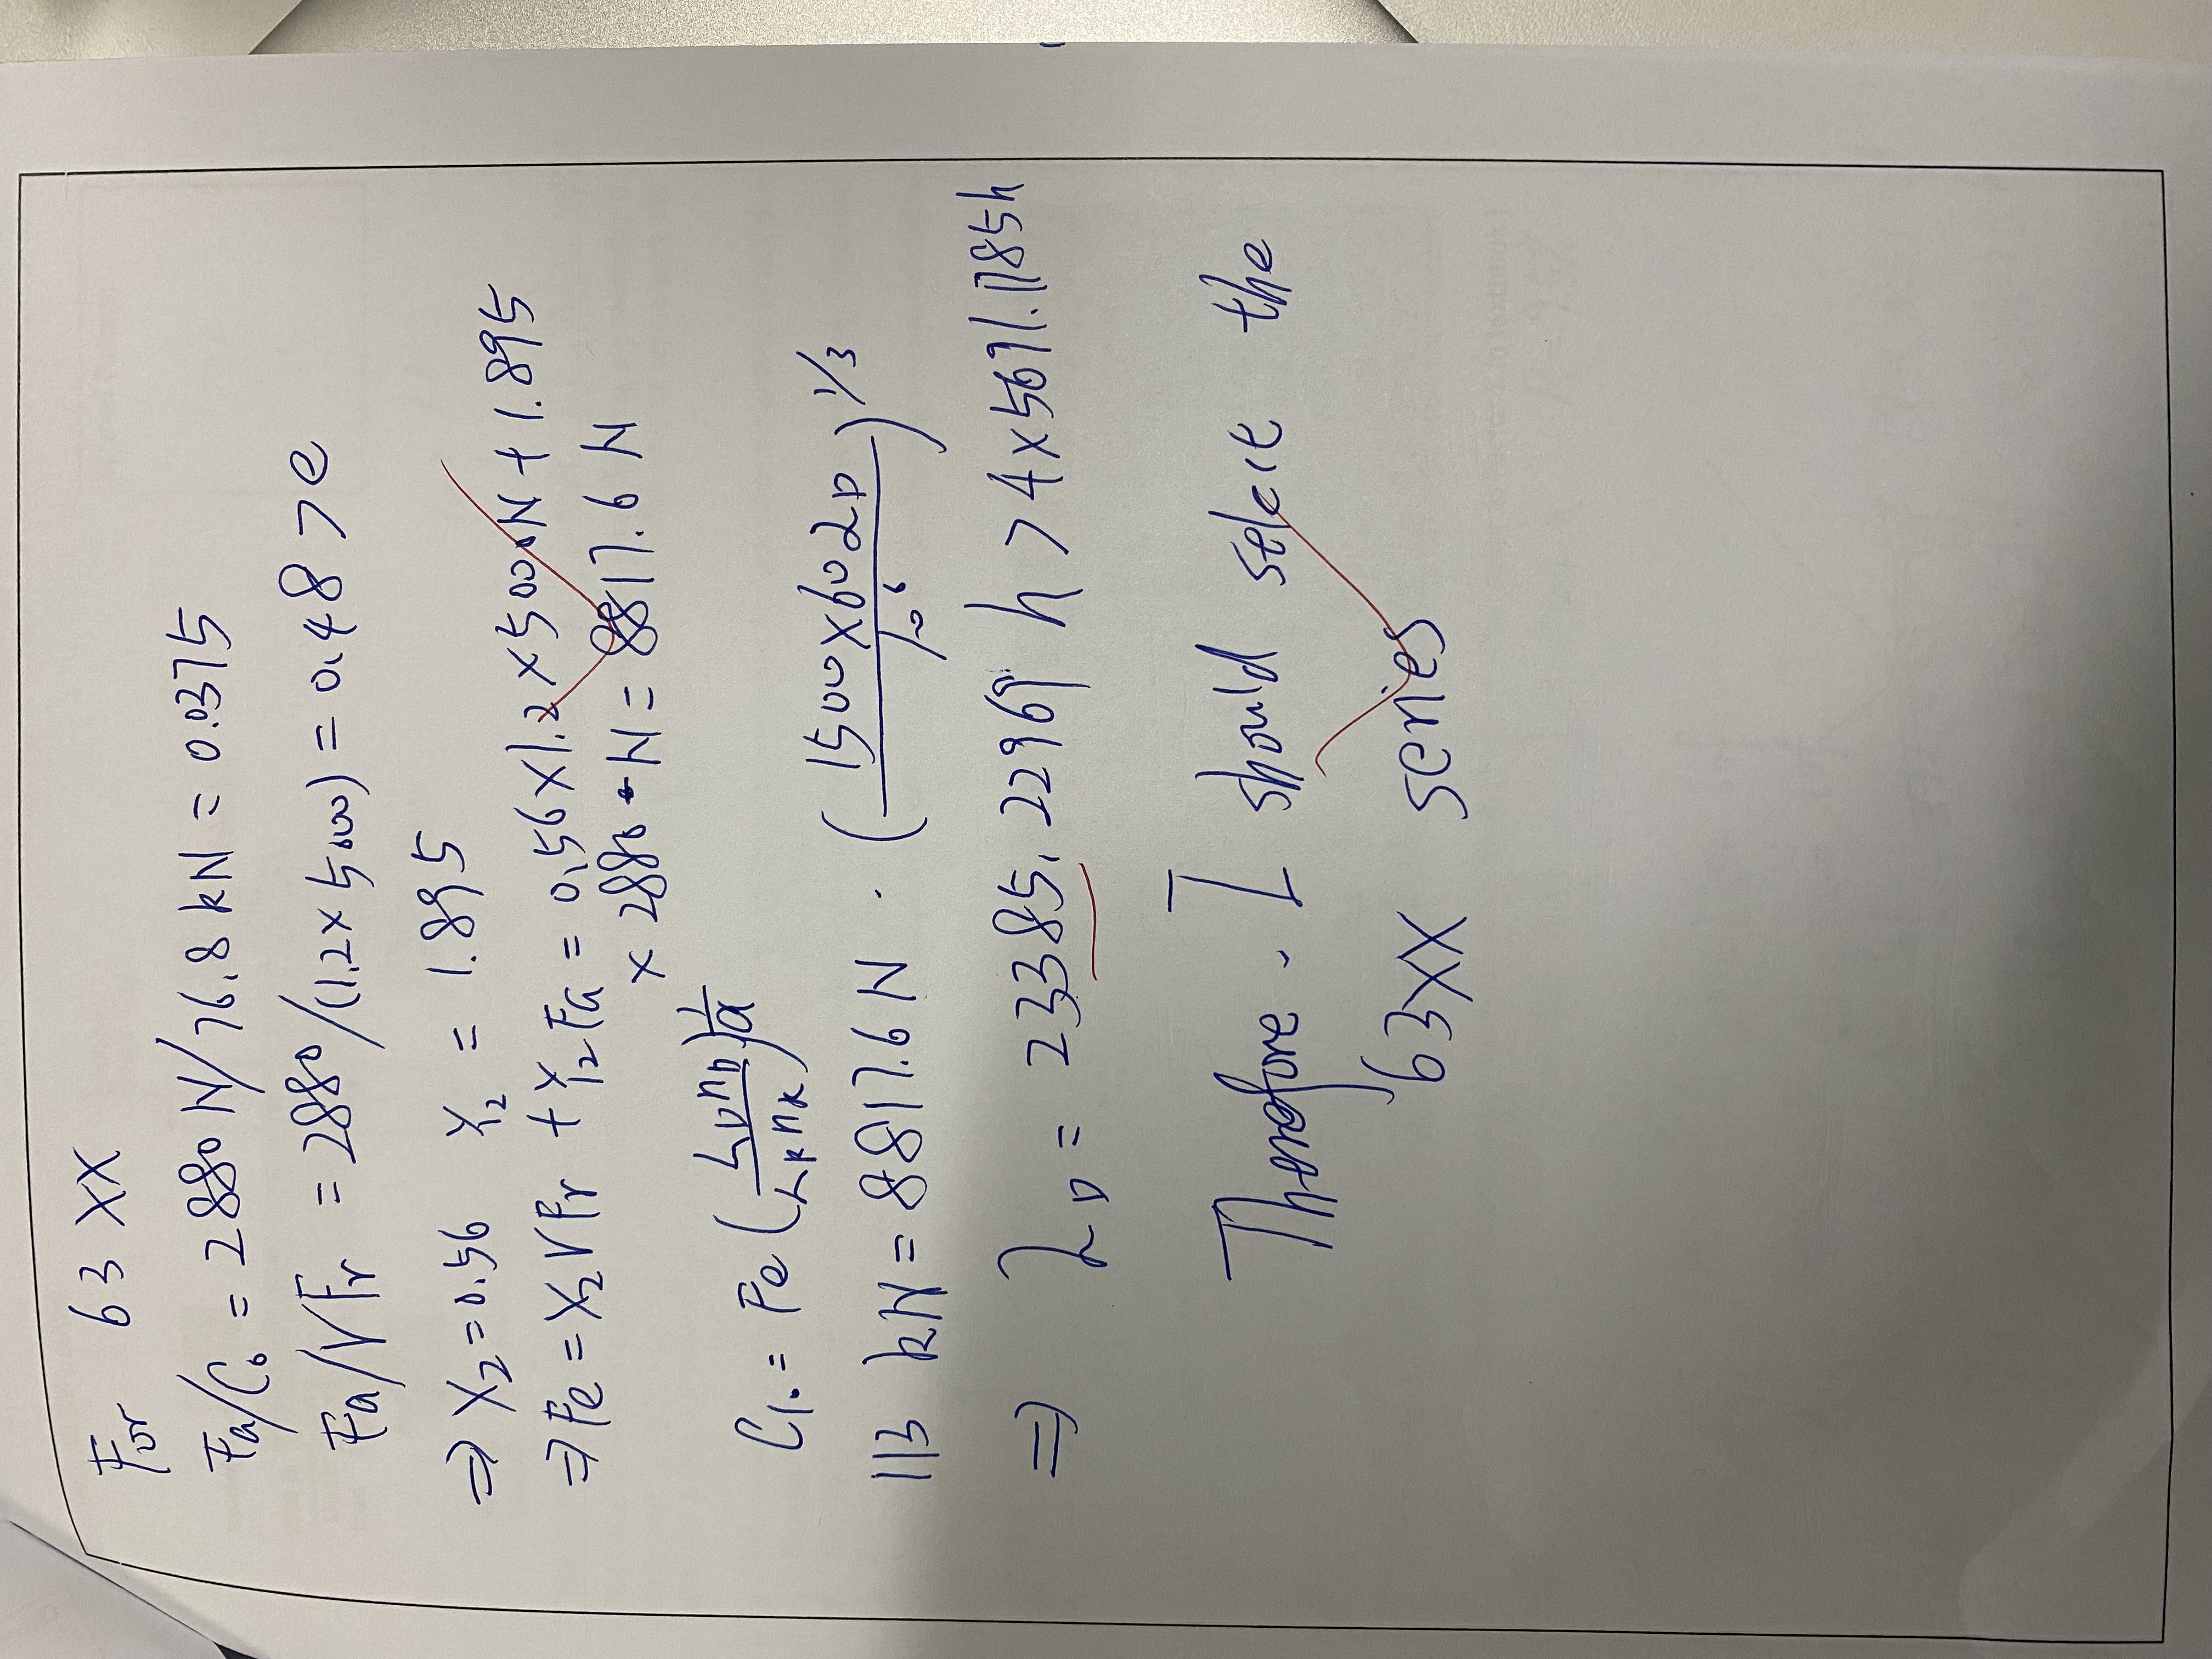 For 63 XX
Fa/C₀ = 2880 N/76.8 kN = 0.0375
Fa/VFr = 2880/(1.2×5000) = 0.48 > e
⇒ X₂ = 0.56 Y₂ = 1.895
⇒ Fe = X₂VFr + Y₂Fa = 0.56×1.2×5000N + 1.895
× 2880 N = 8817.6 N
C₁₀ = Fe (L_D n_D / L_R n_R)^(1/a)
113 kN = 8817.6 N · (1500×60 L_D / 10⁶)^(1/3)
⇒ L_D = 23385.22969 h > 4×5691.1785h
Therefore. I should select the
63XX series